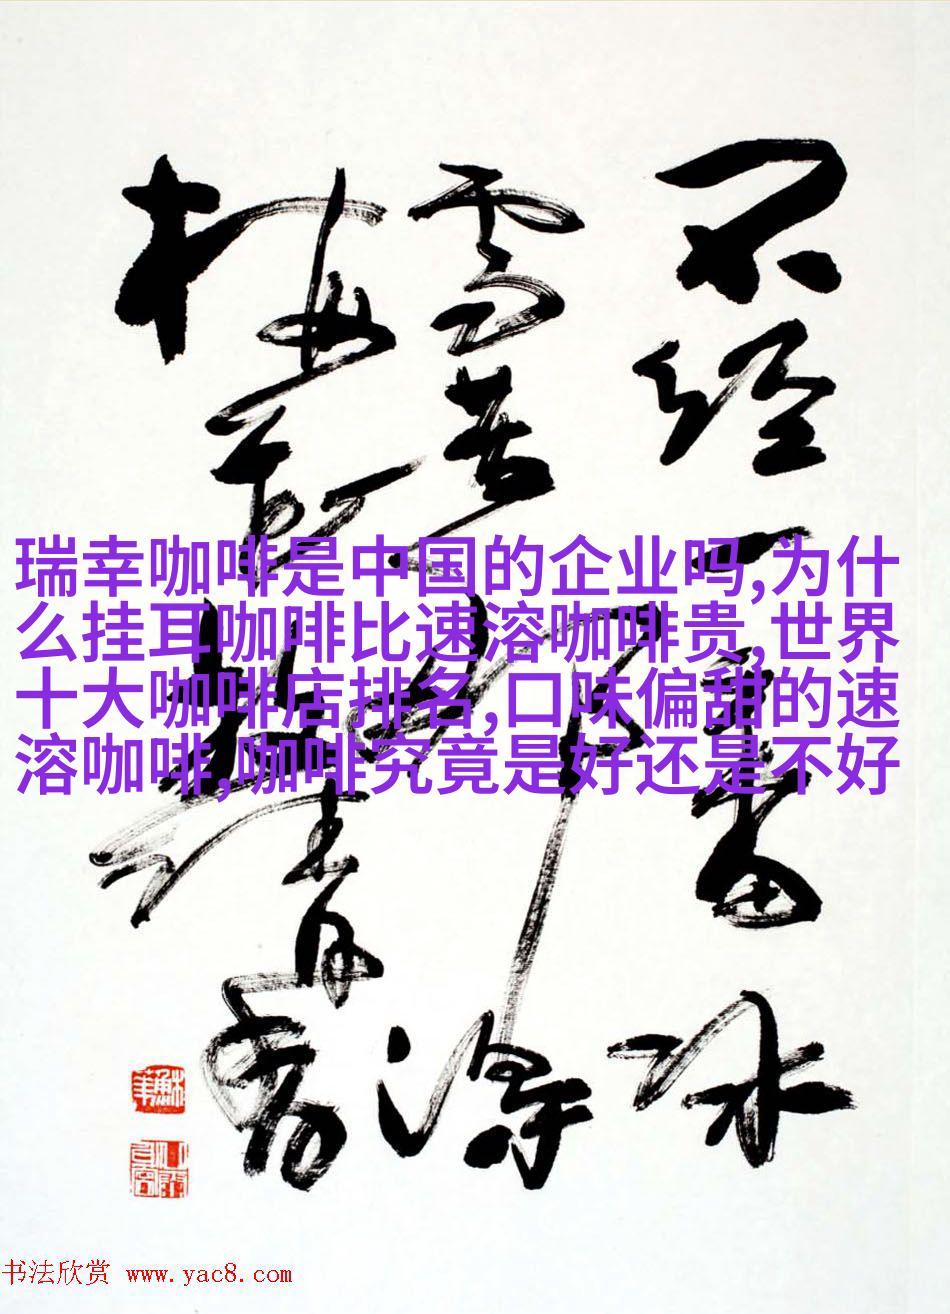 不经一番冰
雪苦哪得
梅花放清香
瑞幸咖啡是中国的企业吗,为什
么挂耳咖啡比速溶咖啡贵,世界
十大咖啡店排名,口味偏甜的速
溶咖啡,咖啡究竟是好还是不好
书法欣赏 www.yac8.com